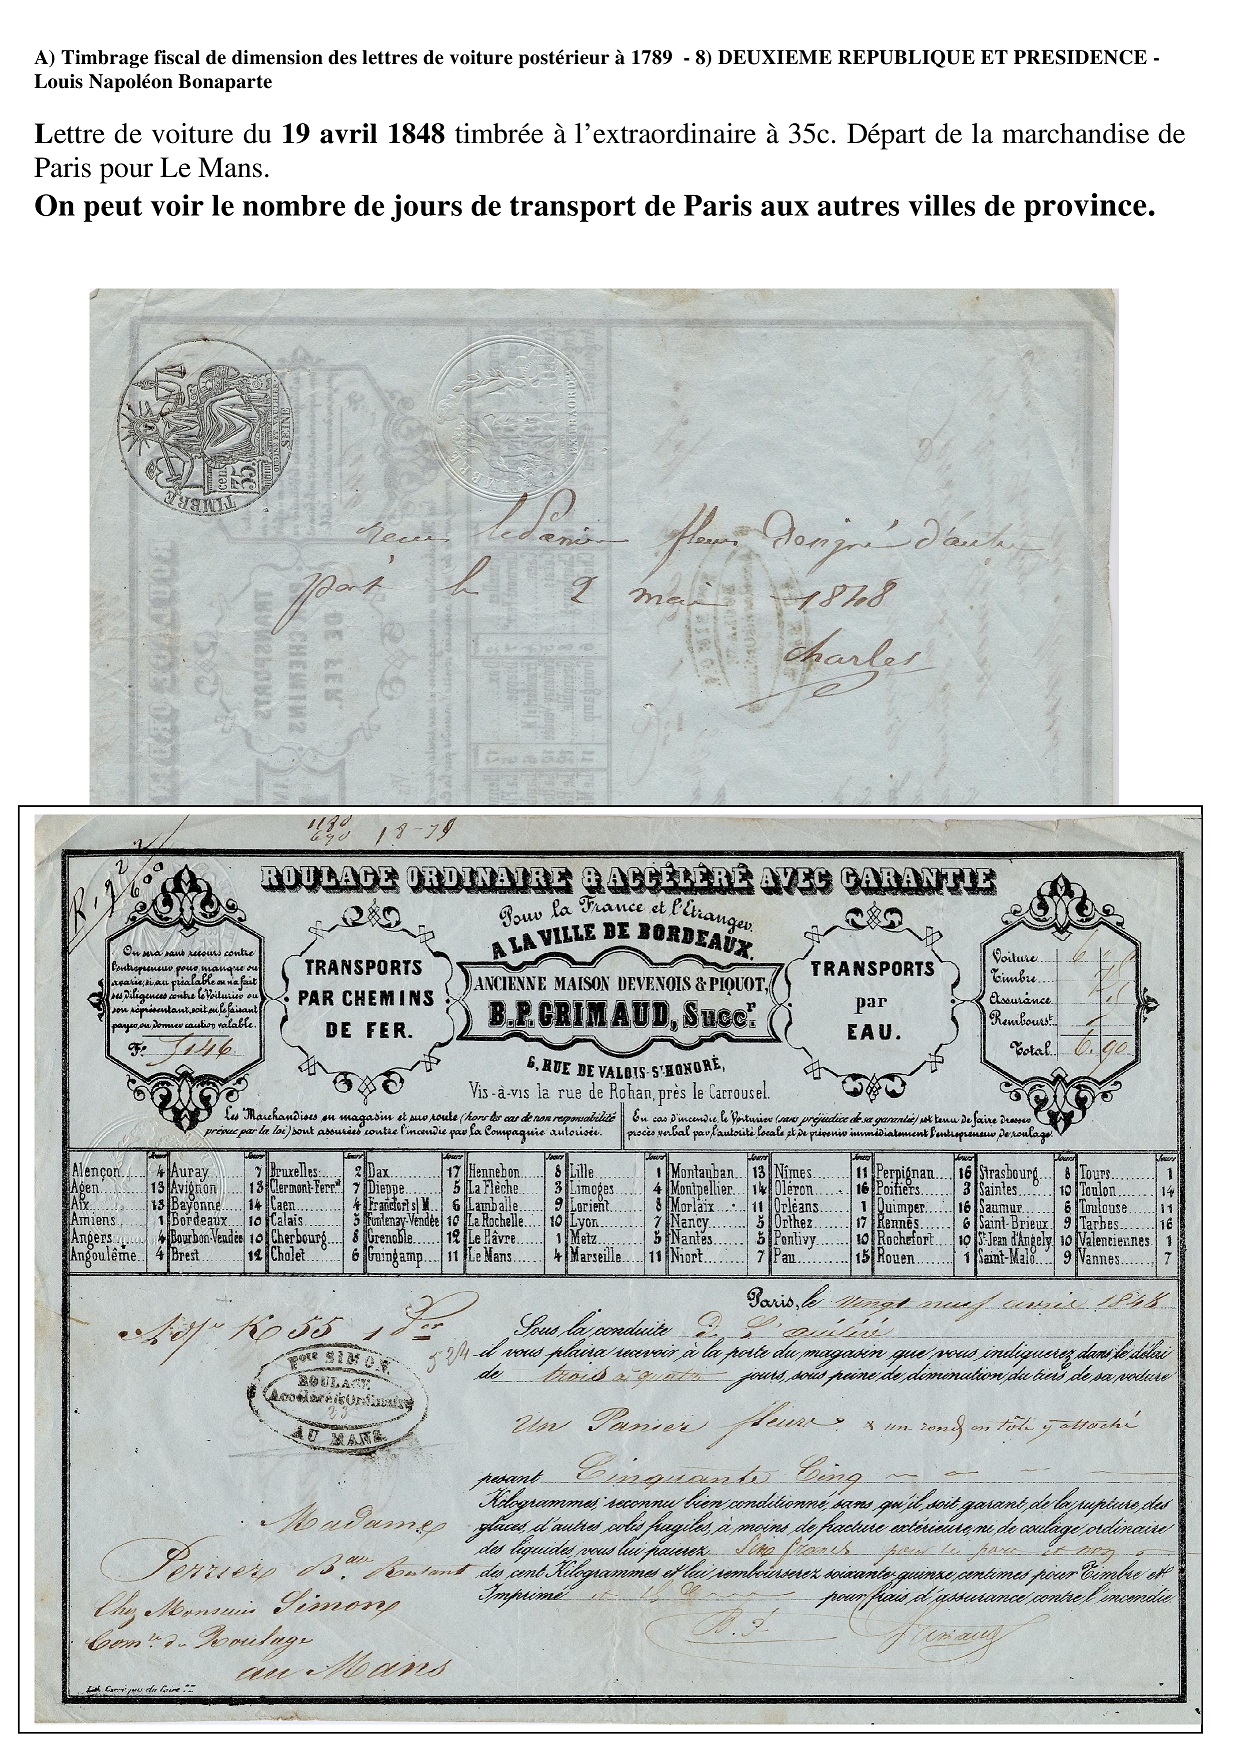 A) Timbrage fiscal de dimension des lettres de voiture postérieur à 1789 - 8) DEUXIEME REPUBLIQUE ET PRESIDENCE -
Louis Napoléon Bonaparte
Lettre de voiture du 19 avril 1848 timbrée à l’extraordinaire à 35c. Départ de la marchandise de
Paris pour Le Mans.
On peut voir le nombre de jours de transport de Paris aux autres villes de province.
TIMBRE
35 cen
SEINE
part le 2 mai 1848
Charles
1180
690 18-79
ROULAGE ORDINAIRE & ACCÉLÉRÉ AVEC GARANTIE
Pour la France et l'Etranger.
A LA VILLE DE BORDEAUX.
ANCIENNE MAISON DEVENOIS & PIQUOT,
B.P. GRIMAUD, Succr.
6, RUE DE VALOIS-St HONORÉ,
Vis-à-vis la rue de Rohan, près le Carrousel.
On sera sans recours contre
l'entrepreneur pour manque ou
avarie, si, au préalable on na fait
ses diligences contre le Voiturier ou
son représentant, soit en le faisant
payer, ou donner caution valable.
TRANSPORTS
PAR CHEMINS
DE FER.
TRANSPORTS
par
EAU.
Voiture
Timbre
Assurance
Rembourst
Total 6.90
Les Marchandises en magasin et sur route (hors les cas de non responsabilité
prévue par la loi) sont assurées contre l'incendie par la Compagnie autorisée.
En cas d'incendie le Voiturier (sans préjudice de sa garantie) est tenu de faire dresser
procès verbal par l'autorité locale et de prévenir immédiatement l'entrepreneur de roulage.
Jours Jours Jours Jours Jours Jours Jours Jours Jours Jours Jours
Alençon 4 Auray 7 Bruxelles 2 Dax 17 Hennebon 8 Lille 1 Montauban 13 Nîmes 11 Perpignan 16 Strasbourg 8 Tours 1
Agen 13 Avignon 13 Clermont-Ferrd 7 Dieppe 5 La Flèche 3 Limoges 4 Montpellier 14 Oléron 16 Poitiers 3 Saintes 10 Toulon 14
Aix 13 Bayonne 14 Caen 4 Francfort s/M 6 Lamballe 9 Lorient 8 Morlaix 11 Orléans 1 Quimper 16 Saumur 6 Toulouse 11
Amiens 1 Bordeaux 10 Calais 5 Fontenay-Vendée 10 La Rochelle 10 Lyon 7 Nancy 5 Orthez 17 Rennes 6 Saint-Brieux 9 Tarbes 16
Angers 4 Bourbon-Vendée 10 Cherbourg 8 Grenoble 12 Le Hâvre 1 Metz 5 Nantes 5 Pontivy 10 Rochefort 10 St Jean d'Angely 10 Valenciennes 1
Angoulême 4 Brest 12 Cholet 6 Guingamp 11 Le Mans 4 Marseille 11 Niort 7 Pau 15 Rouen 1 Saint-Malo 9 Vannes 7
Paris, le vingt neuf avril 1848
Sous la conduite
il vous plaira recevoir, à la porte du magasin que vous indiquerez dans le délai
de trois à quatre jours, sous peine de diminution du tiers de sa voiture
K 55
SIMON
ROULAGE
Accéléré & Ordinaire
AU MANS
Un Panier fleurs & un rond en tôle y attaché
pesant Cinquante Cinq
Kilogrammes, reconnu bien conditionné, sans qu'il soit garant, de la rupture, des
glaces, d'autres colis fragiles, à moins de fracture extérieure, ni de coulage ordinaire
des liquides, vous lui paierez
des cent Kilogrammes et lui rembourserez soixante quinze centimes pour Timbre et
Imprimé pour frais d'assurance contre l'incendie
Madame
Chez Monsieur Simon
de Roulage
au Mans